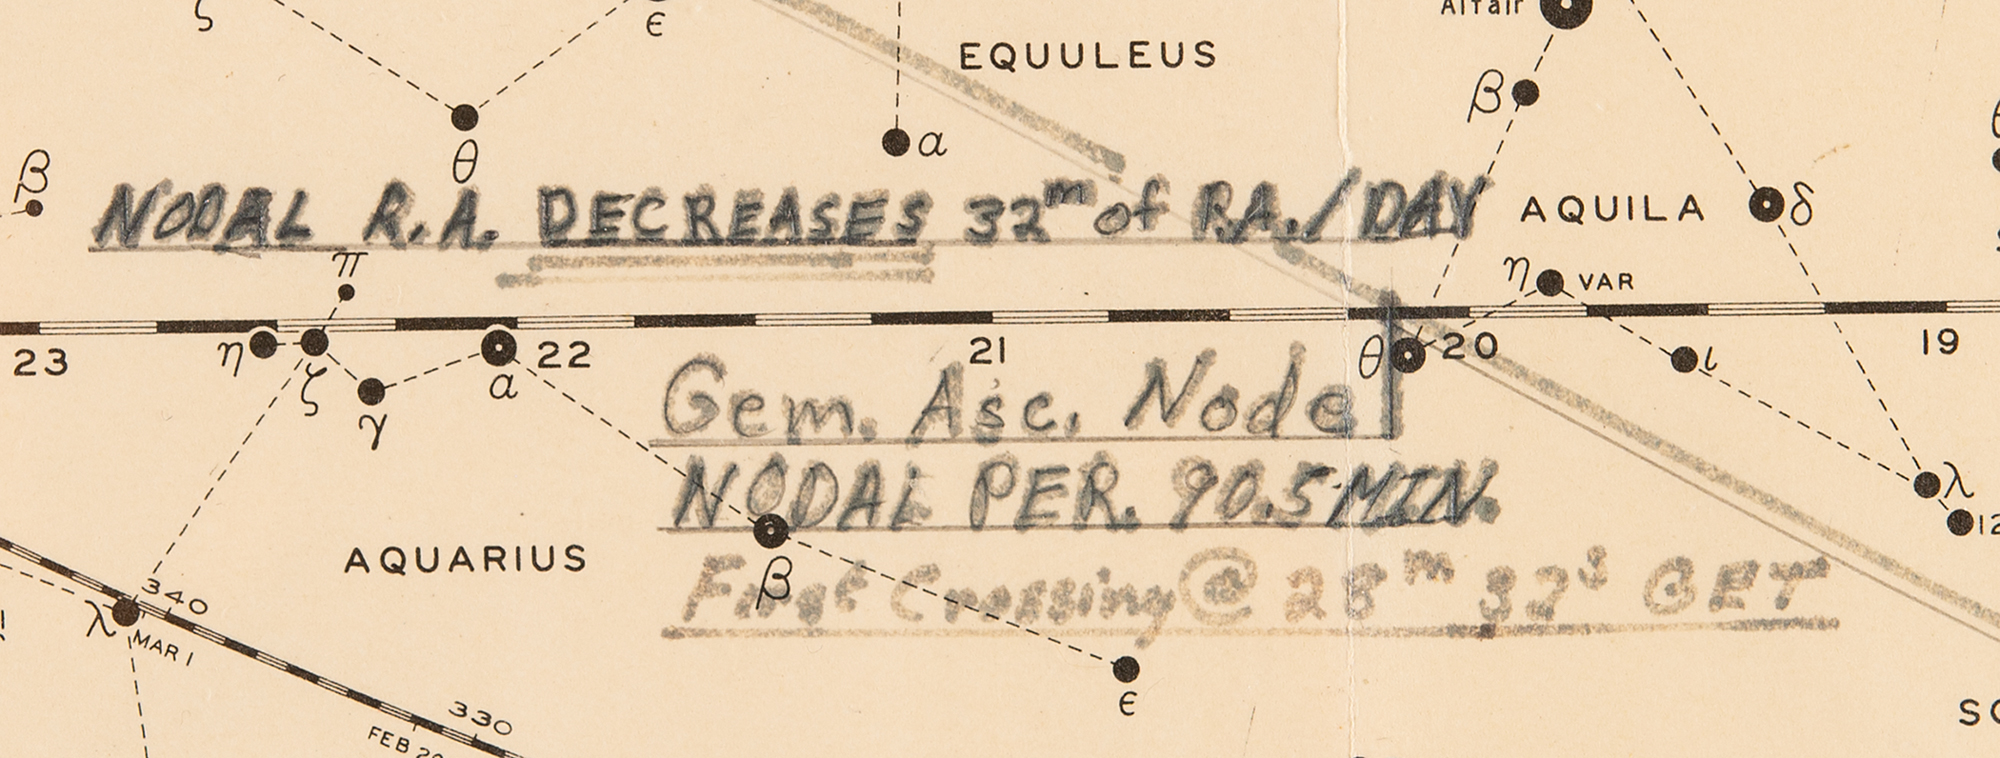 ζ ε Altair
EQUULEUS
β
α
θ
β
NODAL R.A. DECREASES 32ᵐ of R.A./DAY
AQUILA δ
π
η VAR
23 η ζ γ α 22 21 θ 20 ι 19
Gem. Asc. Node
NODAL PER. 90.5 MIN.
λ
12
AQUARIUS
β
First Crossing @ 28ᵐ 32ˢ GET
340
λ MAR 1
ε
330
FEB 20